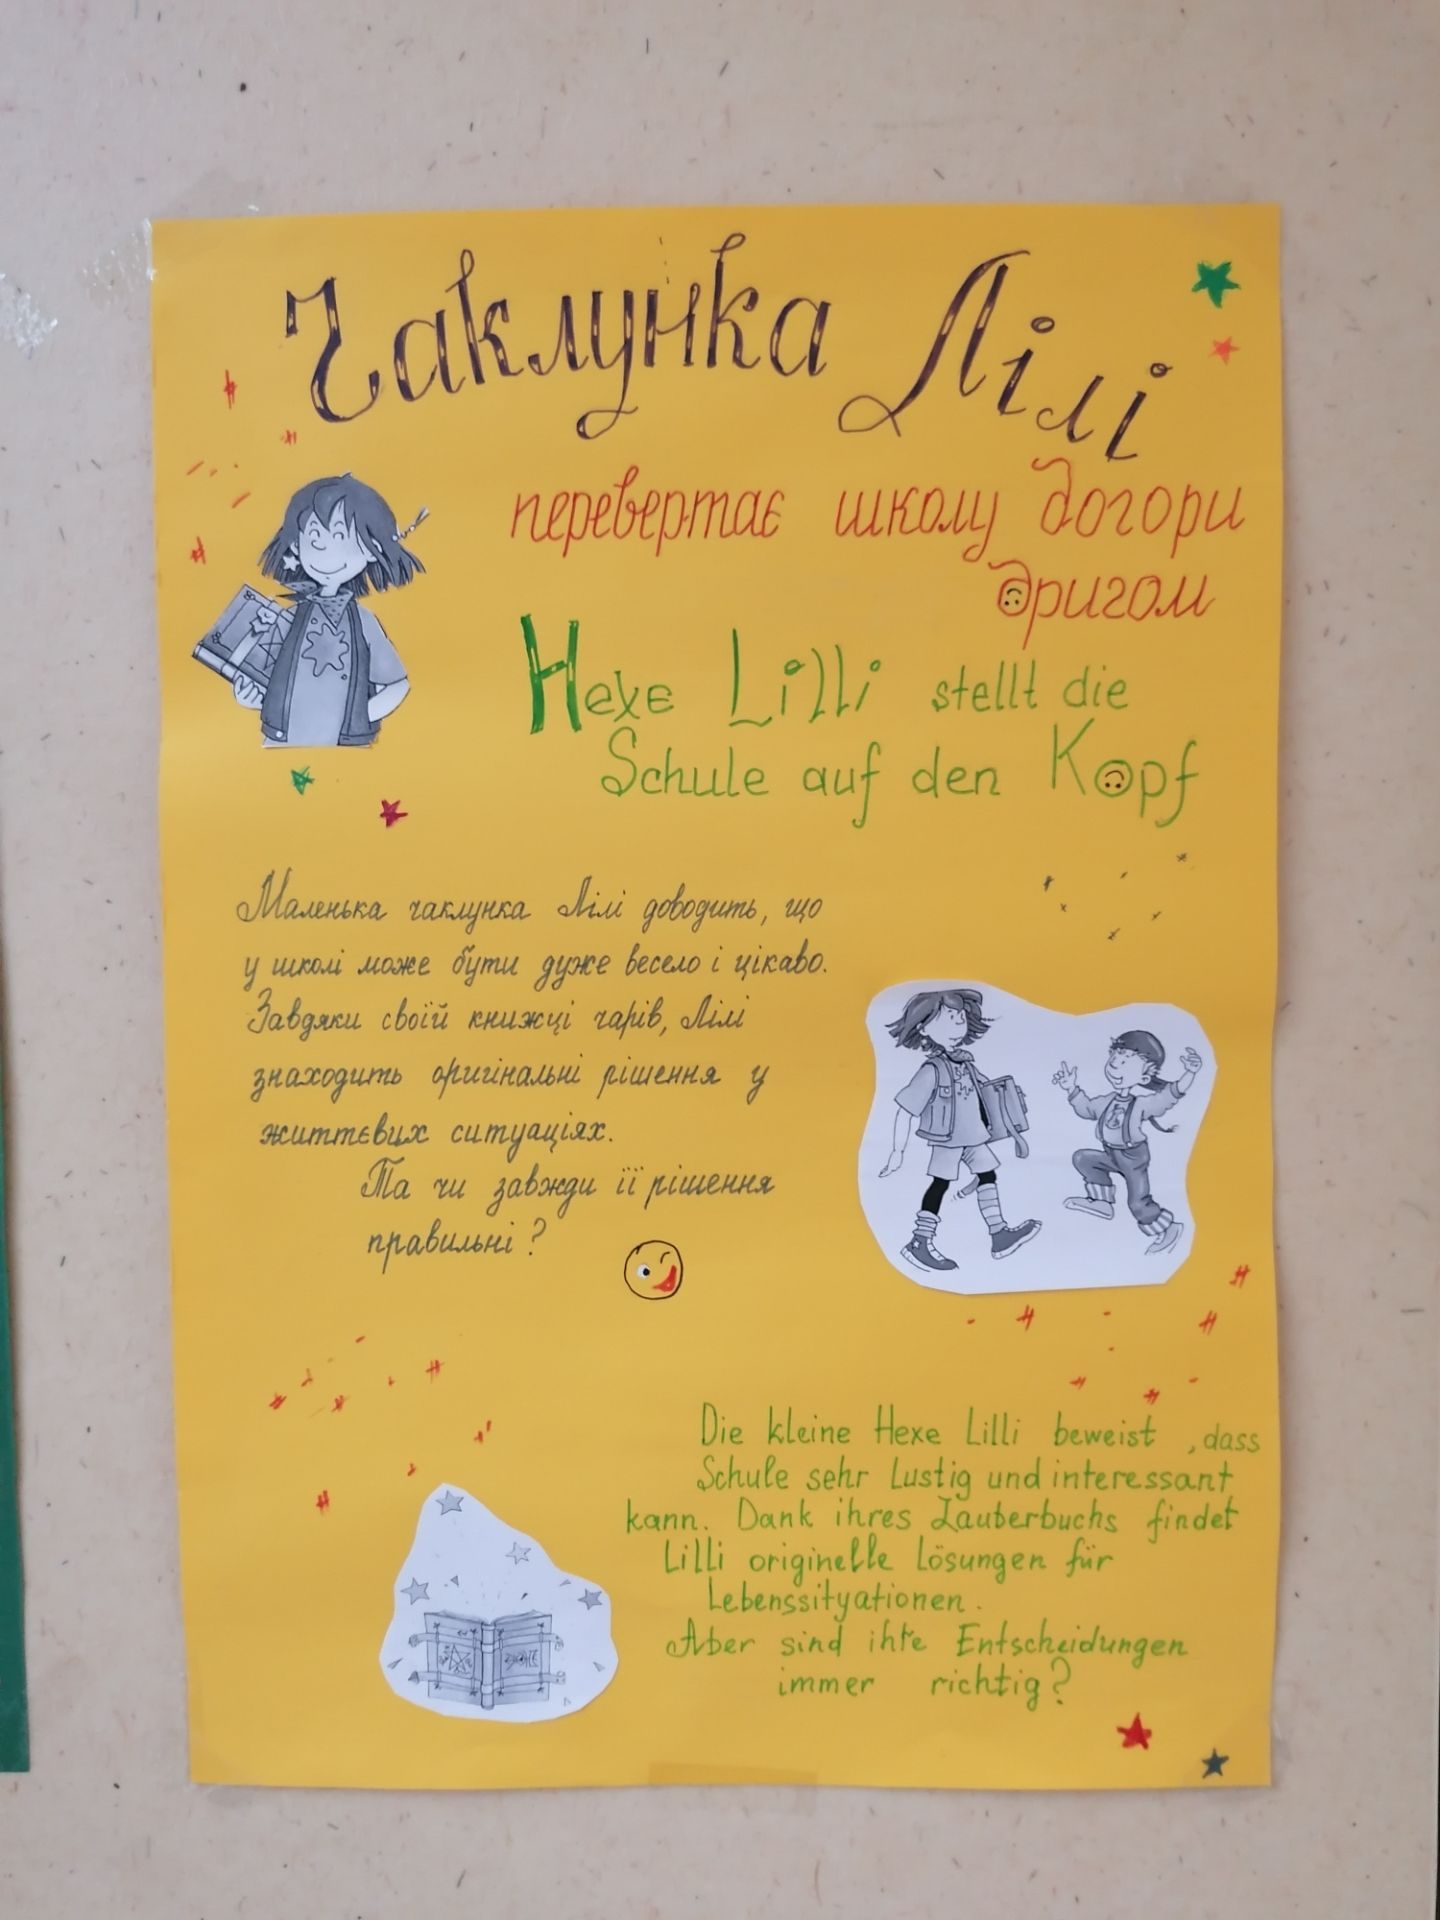 Чаклунка Лілі
перевертає школу догори
дригом
Hexe Lilli stellt die
Schule auf den Kopf
Маленька чаклунка Лілі доводить, що
у школі може бути дуже весело і цікаво.
Завдяки своїй книжці чарів, Лілі
знаходить оригінальні рішення у
життєвих ситуаціях.
Та чи завжди її рішення
правильні?
Die kleine Hexe Lilli beweist, dass
Schule sehr Lustig und interessant
kann. Dank ihres Zauberbuchs findet
Lilli originelle Lösungen für
Lebenssityationen.
Aber sind ihre Entscheidungen
immer richtig?